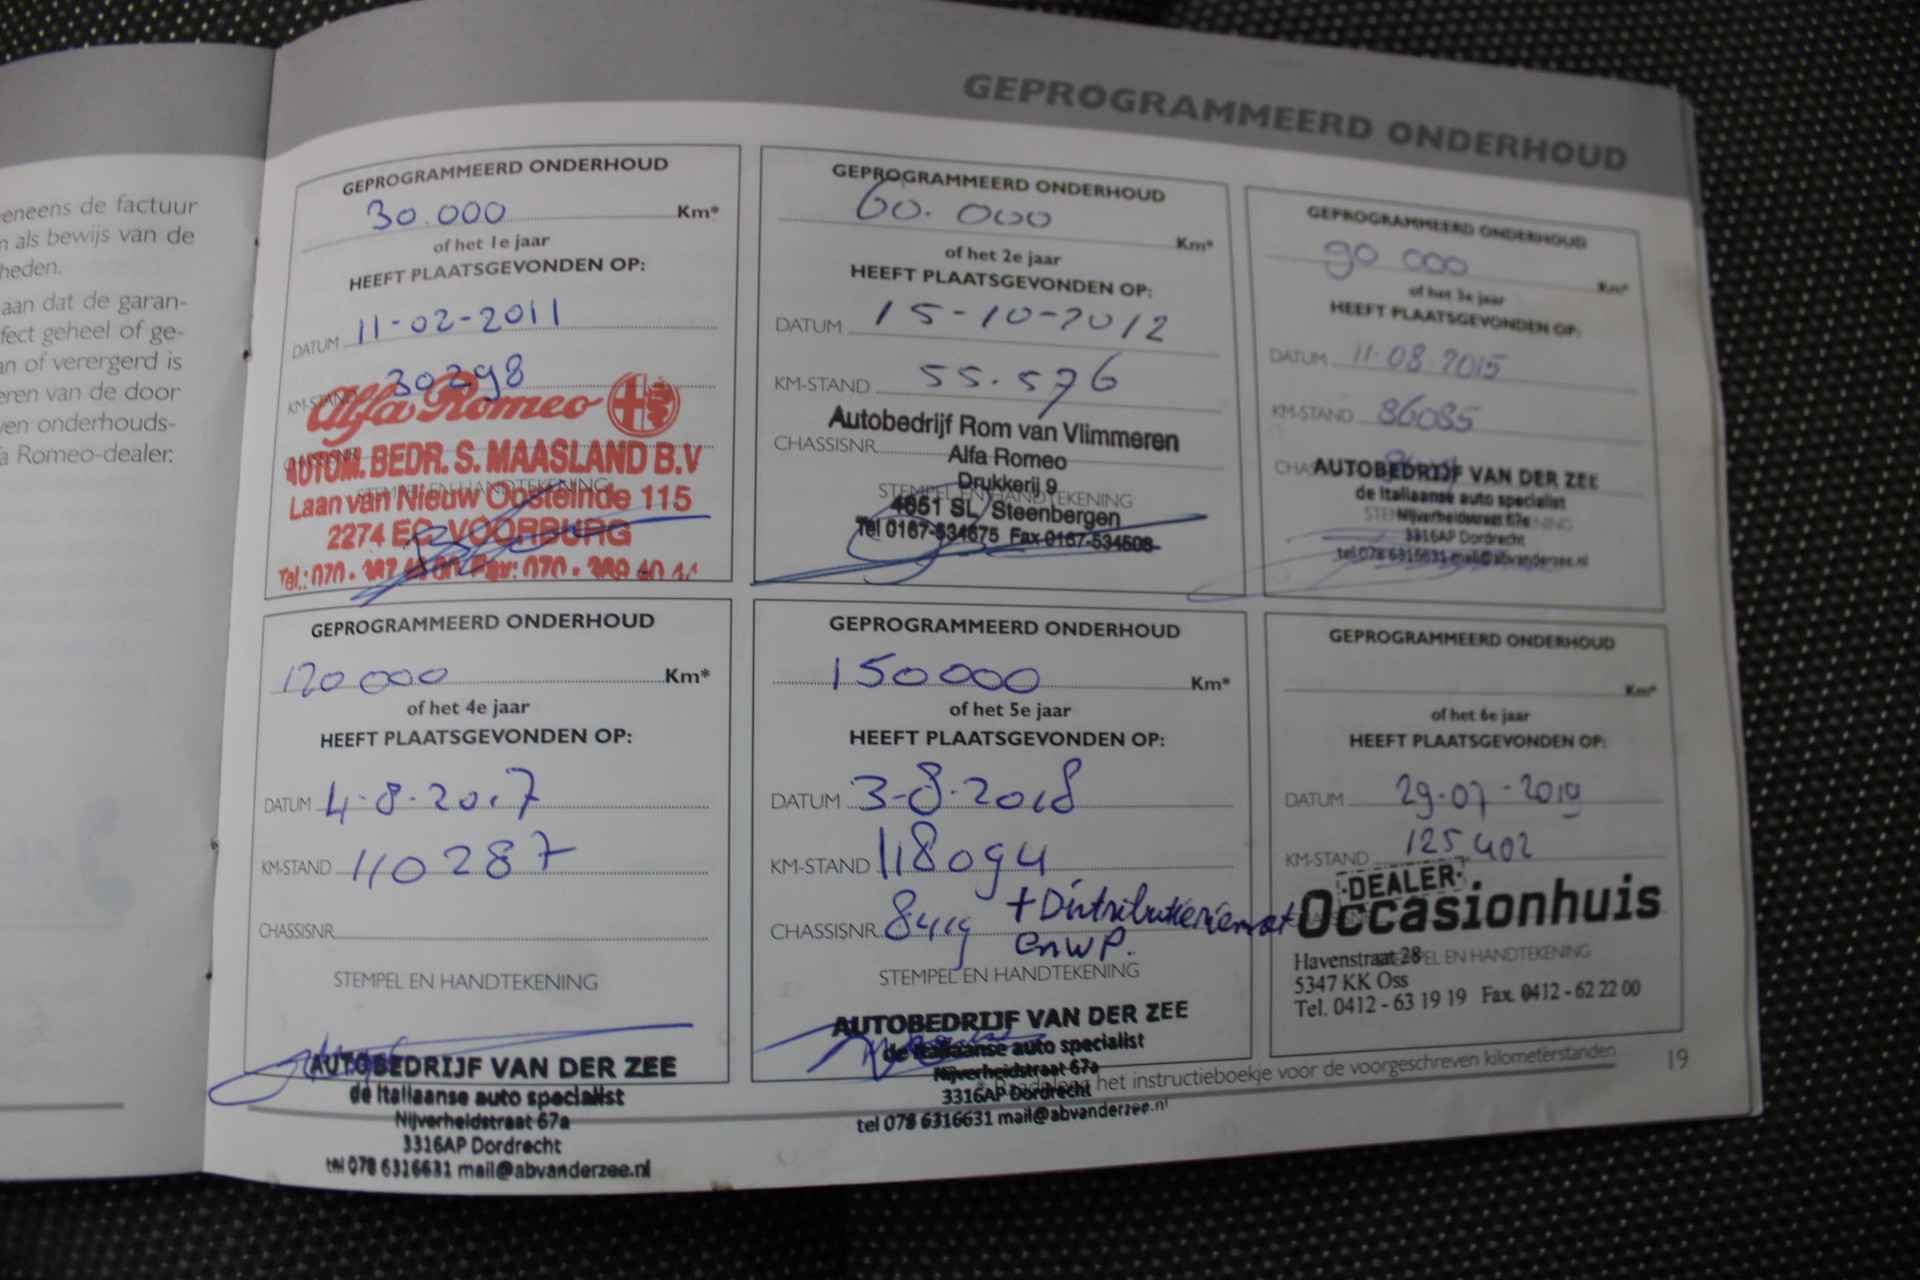 eneens de factuur
als bewijs van de
heden.
aan dat de garan-
fect geheel of ge-
an of verergerd is
eren van de door
ven onderhouds-
a Romeo-dealer.
GEPROGRAMMEERD ONDERHOUD
GEPROGRAMMEERD ONDERHOUD
30.000 Km*
of het 1e jaar
HEEFT PLAATSGEVONDEN OP:
DATUM 11-02-2011
KM-STAND 30298
Alfa Romeo
AUTOM. BEDR. S. MAASLAND B.V
Laan van Nieuw Oosteinde 115
2274 EG VOORBURG
GEPROGRAMMEERD ONDERHOUD
60.000 Km*
of het 2e jaar
HEEFT PLAATSGEVONDEN OP:
DATUM 15-10-2012
KM-STAND 55.576
Autobedrijf Rom van Vlimmeren
CHASSISNR.
Alfa Romeo
Drukkerij 9
STEMPEL EN HANDTEKENING
4651 SL Steenbergen
Tel 0167-534675 Fax 0167-534508
GEPROGRAMMEERD ONDERHOUD
90 000 Km*
of het 3e jaar
HEEFT PLAATSGEVONDEN OP:
DATUM 11-08-2015
KM-STAND 86085
AUTOBEDRIJF VAN DER ZEE
de Italiaanse auto specialist
Nijverheidstraat 67a
3316AP Dordrecht
tel 078 6316631 mail@abvanderzee.nl
GEPROGRAMMEERD ONDERHOUD
120 000 Km*
of het 4e jaar
HEEFT PLAATSGEVONDEN OP:
DATUM 4-8-2017
KM-STAND 110287
CHASSISNR.
STEMPEL EN HANDTEKENING
AUTOBEDRIJF VAN DER ZEE
de Italiaanse auto specialist
Nijverheidstraat 67a
3316AP Dordrecht
tel 078 6316631 mail@abvanderzee.nl
GEPROGRAMMEERD ONDERHOUD
150000 Km*
of het 5e jaar
HEEFT PLAATSGEVONDEN OP:
DATUM 3-8-2018
KM-STAND 118094
CHASSISNR. 8419 + Distributieriemset
en WP.
STEMPEL EN HANDTEKENING
AUTOBEDRIJF VAN DER ZEE
de Italiaanse auto specialist
Nijverheidstraat 67a
3316AP Dordrecht
tel 078 6316631 mail@abvanderzee.nl
GEPROGRAMMEERD ONDERHOUD
Km*
of het 6e jaar
HEEFT PLAATSGEVONDEN OP:
DATUM 29-07-2019
KM-STAND 125402
·DEALER·
Occasionhuis
Havenstraat 28
5347 KK Oss
Tel. 0412 - 63 19 19 Fax. 0412 - 62 22 00
* Raadpleeg het instructieboekje voor de voorgeschreven kilometerstanden
19